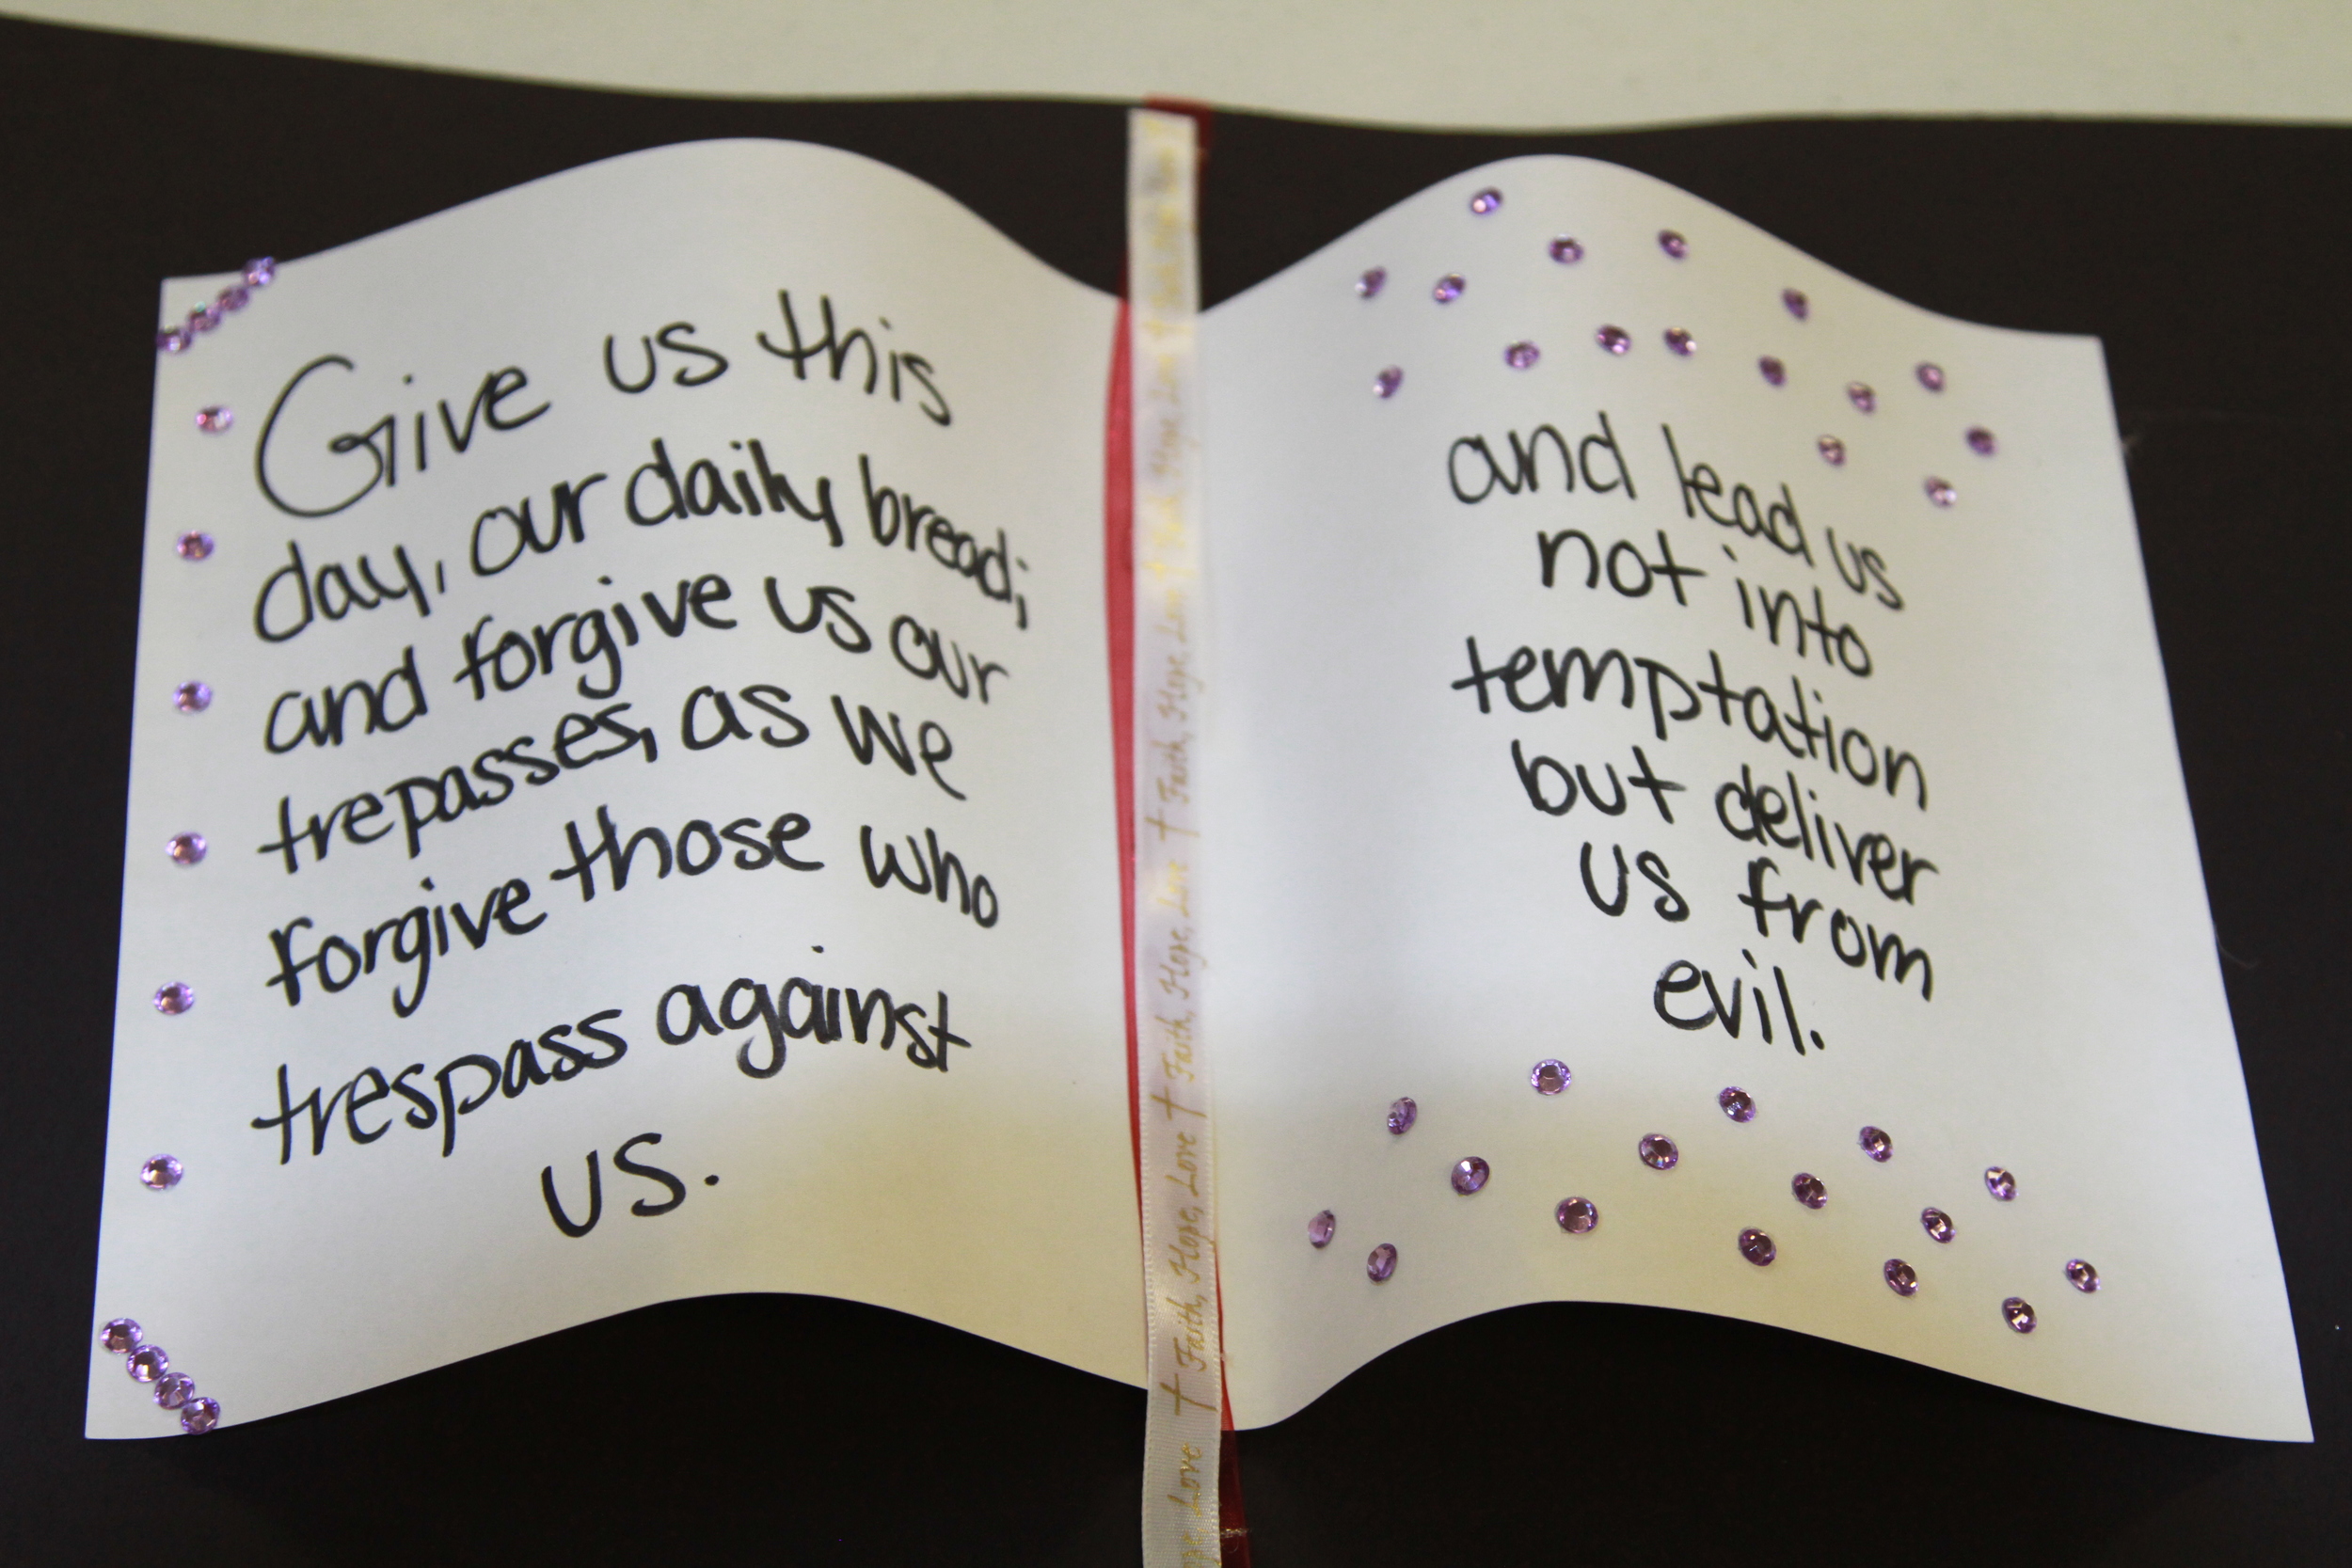 Give us this
day, our daily bread;
and forgive us our
trepasses, as we
forgive those who
trespass against
us.
and lead us
not into
temptation
but deliver
us from
evil.
Love † Faith, Hope, Love † Faith, Hope, Love † Faith, Hope, Love †